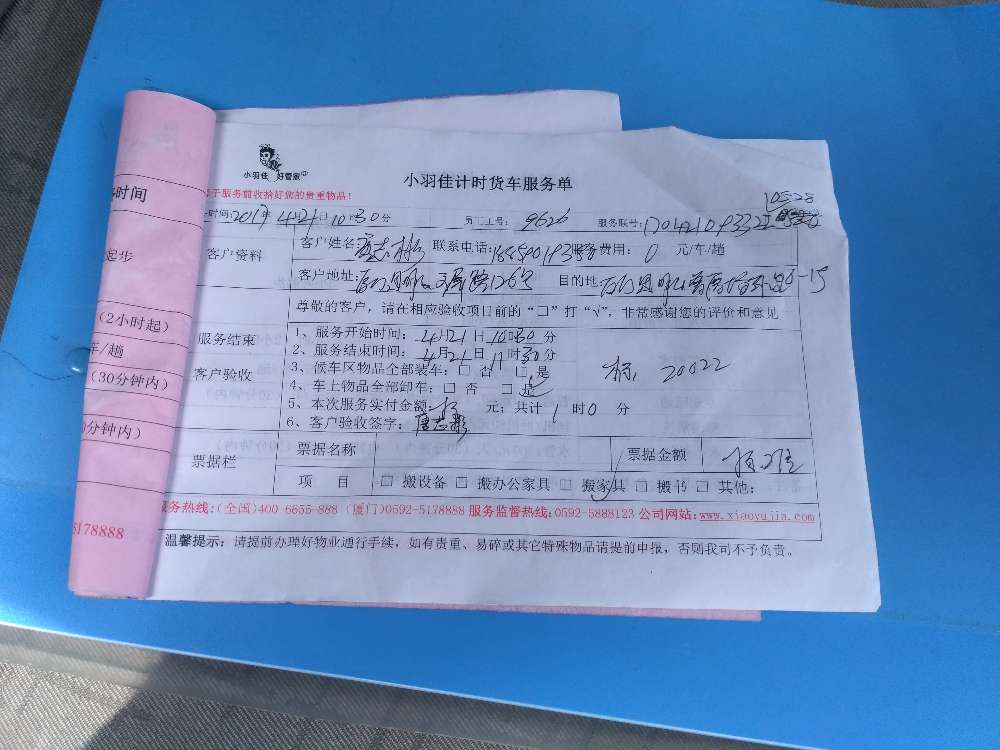 小羽佳 好管家
小羽佳计时货车服务单
于服务前收拾好您的贵重物品！
时间
时间:2017年4月21日10时30分 员工号: 9626 服务联号:
起步
客户资料
客户姓名: 联系电话: 服务费用: 0 元/车/趟
客户地址: 目的地:
尊敬的客户，请在相应验收项目前的“口”打“√”，非常感谢您的评价和意见
(2小时起)
服务结束
客户验收
1、服务开始时间: 4月21日10时30分
2、服务结束时间: 4月21日11时30分
车/趟
3、候车区物品全部装车: □ 否 □ 是
20022
(30分钟内)
4、车上物品全部卸车: □ 否 □ 是
5、本次服务实付金额: 元; 共计 1 时 0 分
分钟内)
6、客户验收签字:
票据栏
票据名称 票据金额
项 目 □ 搬设备 □ 搬办公家具 □ 搬家具 □ 搬书 □ 其他:
服务热线:(全国)400 6655-888 (厦门)0592-5178888 服务监督热线:0592-5888123 公司网站:www.xiaoyujia.com
5178888
温馨提示: 请提前办理好物业通行手续，如有贵重、易碎或其它特殊物品请提前申报，否则我司不予负责。